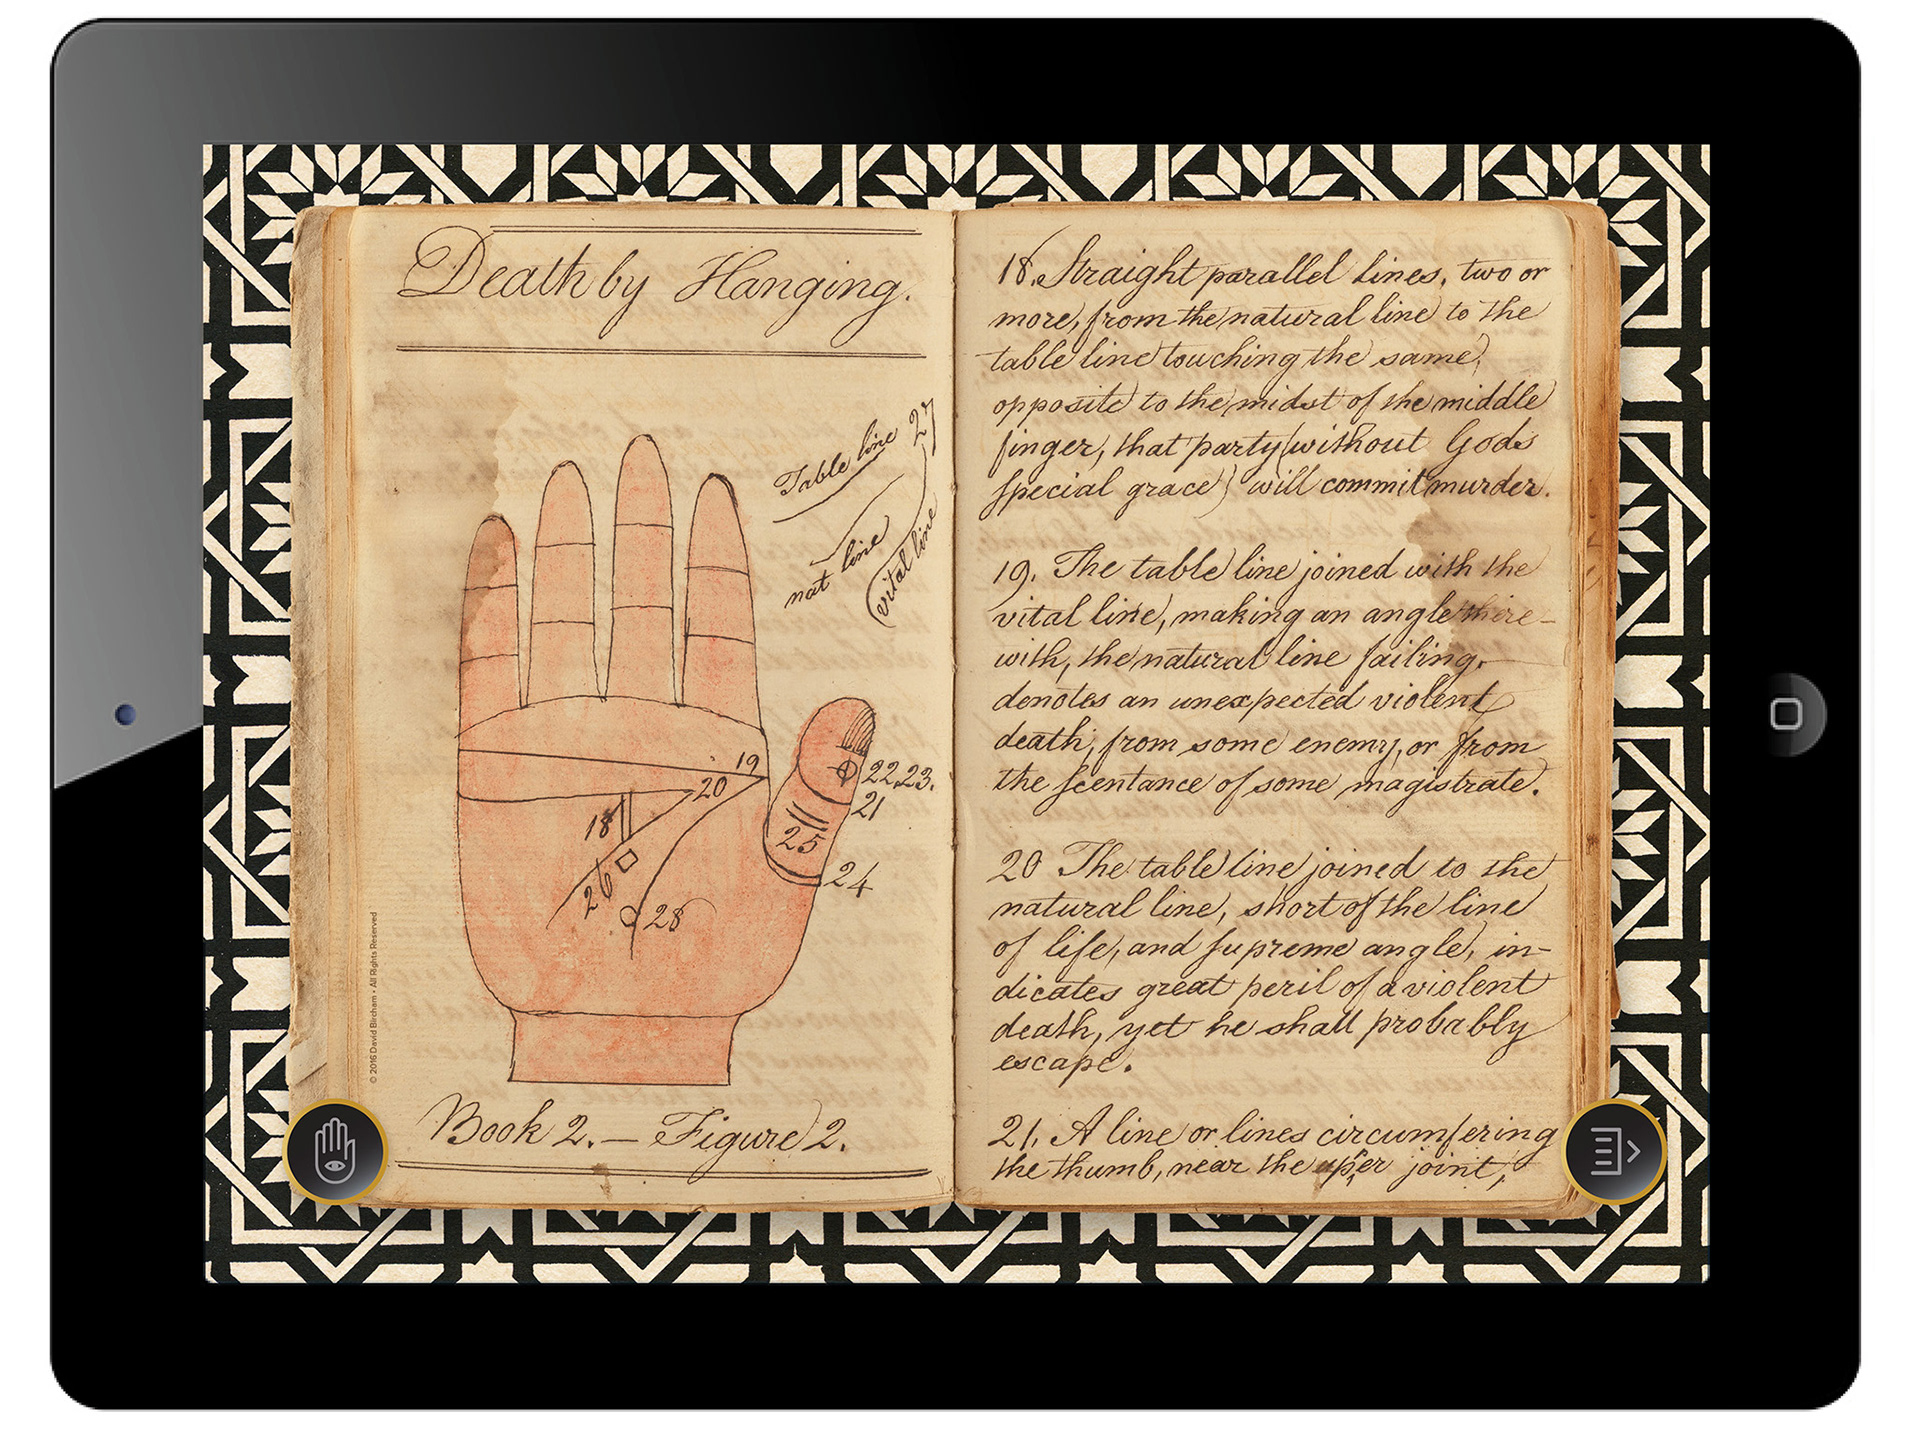 Death by Hanging.
Table line 27
nat line
vital line
19
20
22.23.
21
18
25
24
26
28
© 2016 David Bircham • All Rights Reserved
Book 2. — Figure 2.
18. Straight parallel lines, two or
more, from the natural line to the
table line touching the same,
opposite to the midst of the middle
finger, that party (without Gods
special grace) will commit murder.
19. The table line joined with the
vital line, making an angle there-
with, the natural line failing,
denotes an unexpected violent
death, from some enemy, or from
the scentance of some magistrate.
20 The table line joined to the
natural line, short of the line
of life, and supreme angle, in-
dicates great peril of a violent
death, yet he shall probably
escape.
21. A line or lines circumfering
the thumb, near the upper joint,